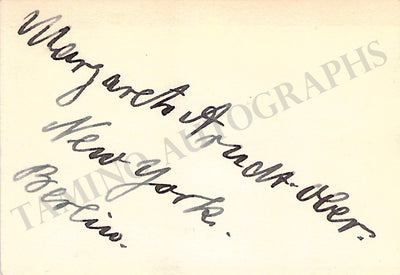 Margarete Arndt-Ober.
New York.
Berlin.
TAMINO AUTOGRAPHS